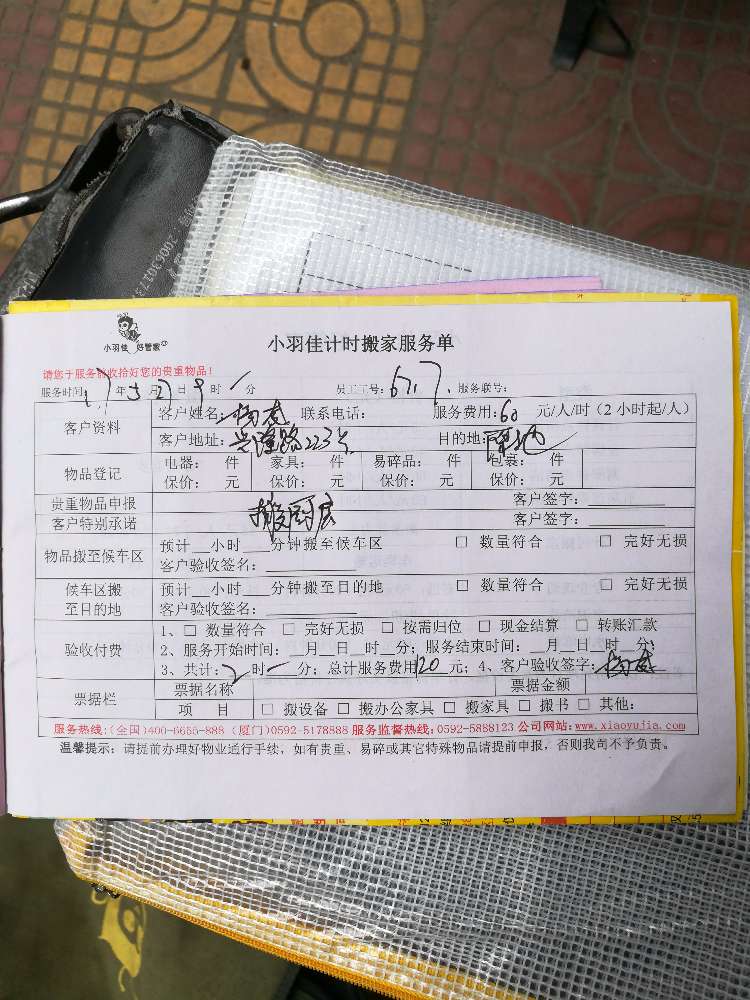 小羽佳 好管家
小羽佳计时搬家服务单
请您于服务前收拾好您的贵重物品！
服务时间：17年3月27日9时一分 员工工号：6717 服务联号：
客户资料 客户姓名：杨 联系电话： 服务费用：60 元/人/时（2小时起/人）
客户地址：兴隆路223号 目的地：
物品登记 电器： 件 家具： 件 易碎品： 件 包裹： 件
保价： 元 保价： 元 保价： 元 保价： 元
贵重物品申报 客户签字：
客户特别承诺 搬厨房 客户签字：
物品搬至候车区 预计__小时___分钟搬至候车区 □ 数量符合 □ 完好无损
客户验收签名：
候车区搬至目的地 预计__小时___分钟搬至目的地 □ 数量符合 □ 完好无损
客户验收签名：
验收付费 1、□ 数量符合 □ 完好无损 □ 按需归位 □ 现金结算 □ 转账汇款
2、服务开始时间：__月__日__时__分；服务结束时间：__月__日__时__分；
3、共计：2时一分；总计服务费用120元；4、客户验收签字：杨
票据栏 票据名称 票据金额
项 目 □ 搬设备 □ 搬办公家具 □ 搬家具 □ 搬书 □ 其他：
服务热线：(全国)400-6655-888 (厦门)0592-5178888 服务监督热线：0592-5888123 公司网站：www.xiaoyujia.com
温馨提示：请提前办理好物业通行手续，如有贵重、易碎或其它特殊物品请提前申报，否则我司不予负责。